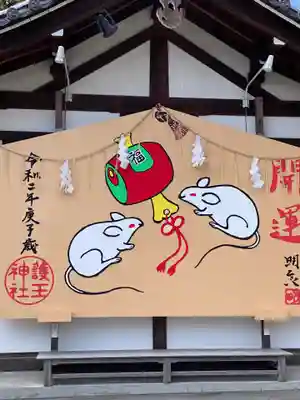 開運
福
令和二年庚子歳
護王
神社